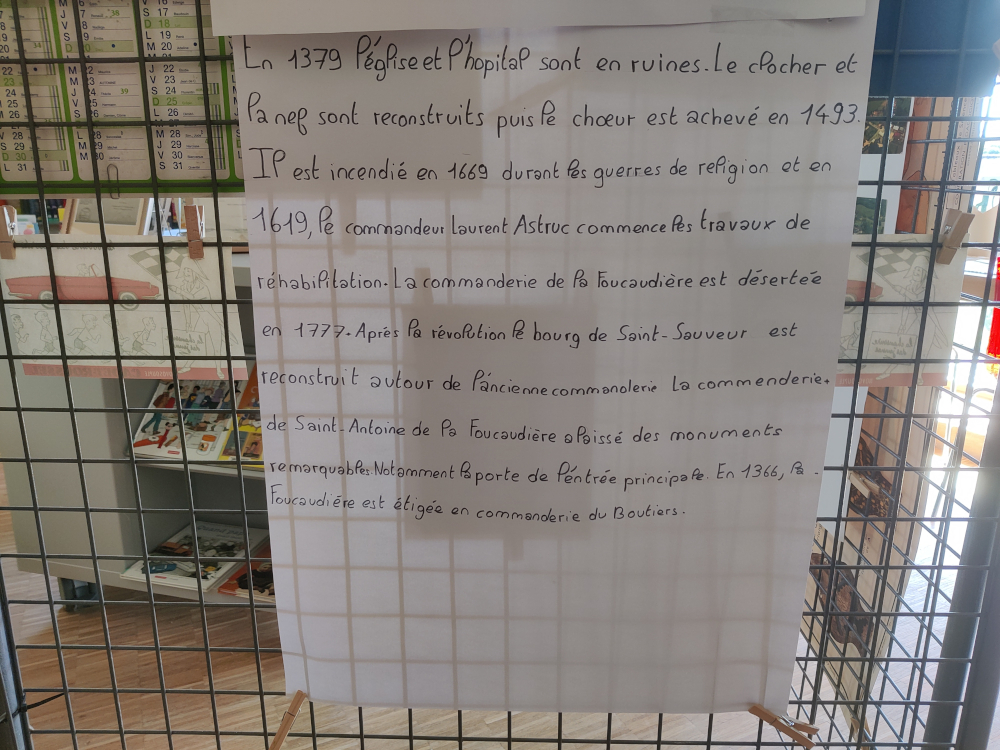 En 1379 l'église et l'hopital sont en ruines. Le clocher et
la nef sont reconstruits puis le choeur est achevé en 1493.
Il est incendié en 1669 durant les guerres de religion et en
1619, le commandeur Laurent Astruc commence les travaux de
réhabilitation. La commanderie de la Foucaudière est désertée
en 1777. Après la révolution le bourg de Saint-Sauveur est
reconstruit autour de l'ancienne commanderie La commenderie.
de Saint-Antoine de la Foucaudière a laissé des monuments
remarquables. Notamment la porte de l'éntrée principale. En 1366, la -
Foucaudière est étigée en commanderie du Boutiers.